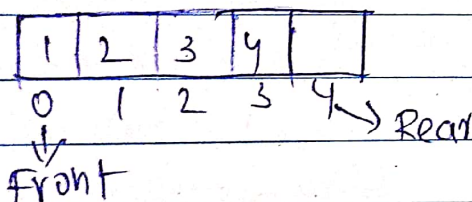 1 2 3 4
0 1 2 3 4 Rear
Front